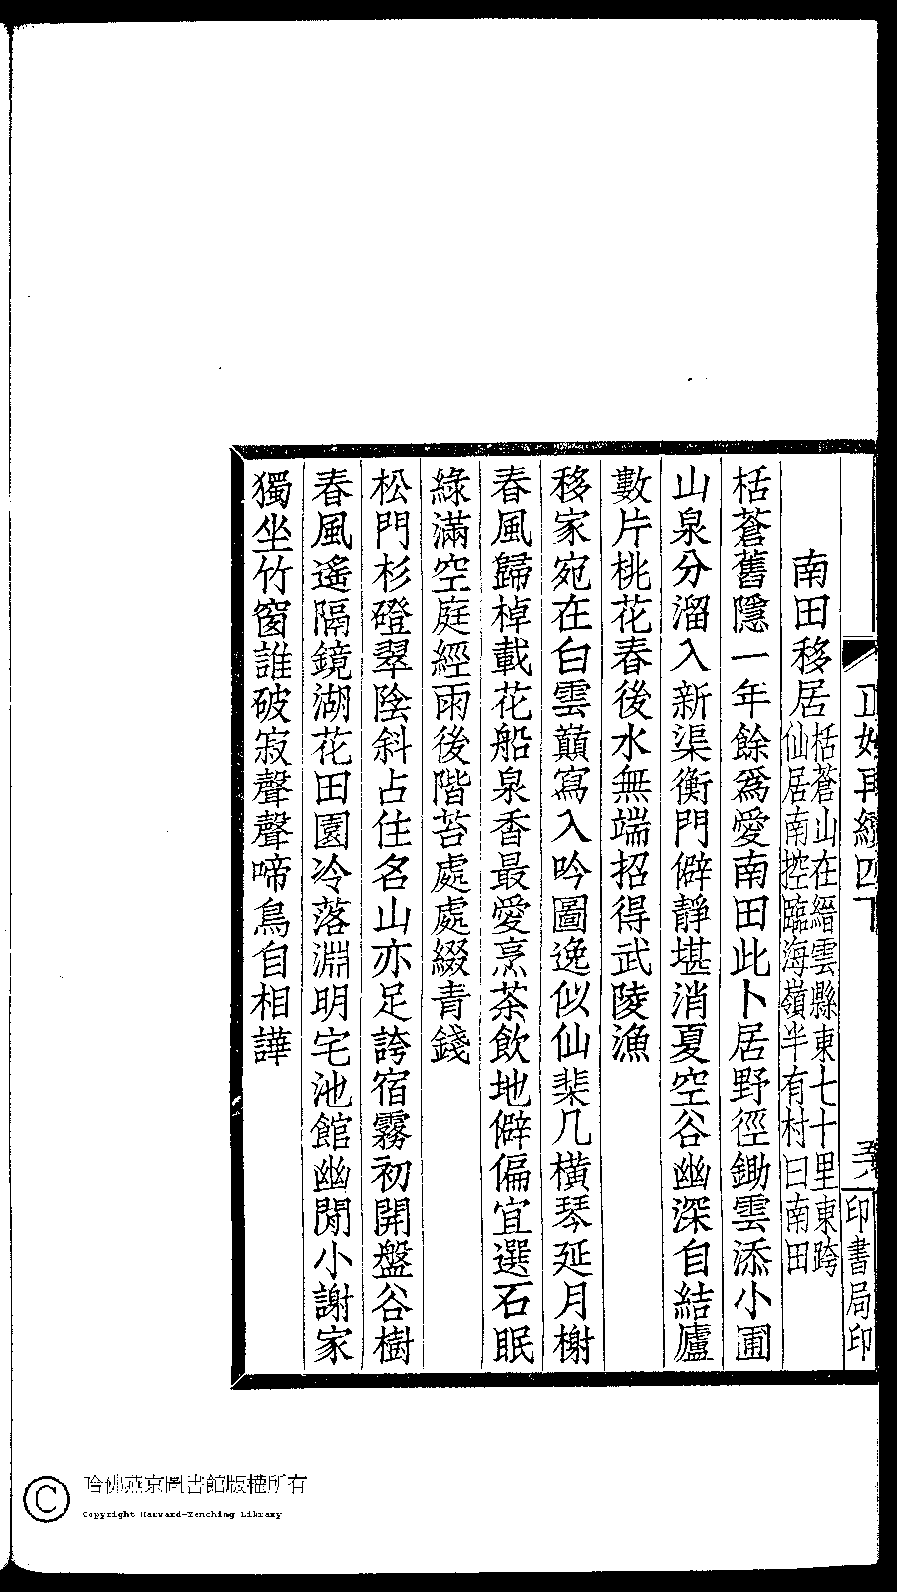 再續四下
印書局印
南田移居
栝蒼山在縉雲縣東七十里東跨
仙居南控臨海嶺半有村曰南田
栝蒼舊隱一年餘爲愛南田此卜居野徑鋤雲添小圃
山泉分溜入新渠衡門僻靜堪消夏空谷幽深自結廬
數片桃花春後水無端招得武陵漁
移家宛在白雲巔寫入吟圖逸似仙棐几橫琴延月榭
春風歸棹載花船泉香最愛烹茶飲地僻偏宜選石眠
綠滿空庭經雨後階苔處處綴青錢
松門杉磴翠陰斜占住名山亦足誇宿霧初開盤谷樹
春風遙隔鏡湖花田園冷落淵明宅池館幽閒小謝家
獨坐竹窗誰破寂聲聲啼鳥自相譁
哈佛燕京圖書館版權所有
Copyright Harvard-Yenching Library